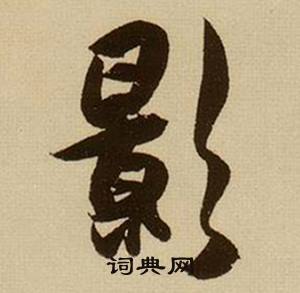 影
词典网